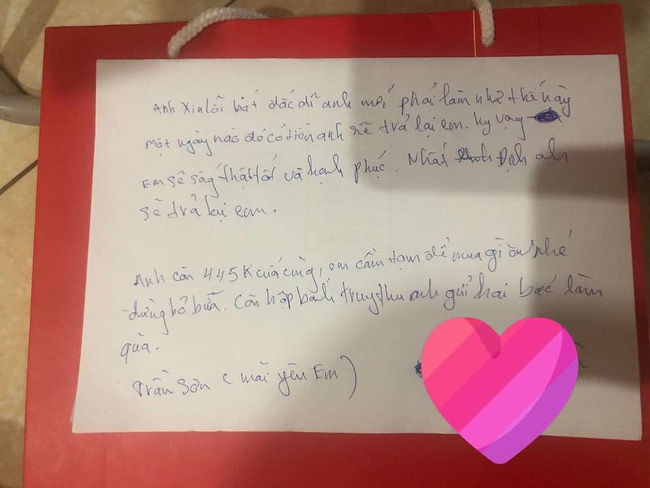 Anh Xin lỗi bất đắc dĩ anh mới phải làm như thế này
Một ngày nào đó có tiền anh sẽ trả lại em. hy vọng
Em sẽ sống thật tốt và hạnh phúc. Nhất Định anh
sẽ trả lại em.
Anh còn 445K cuối cùng, em cầm tạm để mua gì ăn nhé
đừng bỏ bữa. Còn hộp bánh trung thu anh gửi hai bác làm
quà.
Trần Sơn (mãi yên Em)